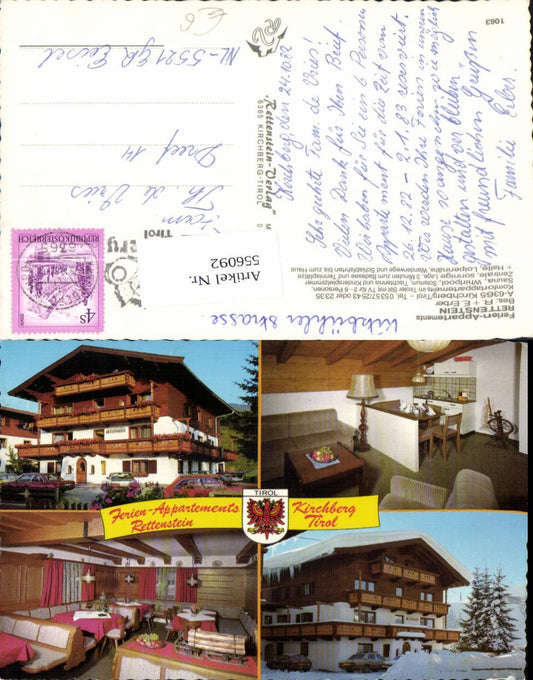 1063
Ferien-Appartements
RETTENSTEIN
Bes. R. + E. Erber
A-6365 Kirchberg/Tirol - Tel. 05357/2543 oder 2335
Komfortappartements im Tiroler Stil mit TV für 2-6 Personen,
Sauna, Whirlpool, Solarium, Tischtennis und Kinderspielzimmer
Zentrale, sonnige Lage, ten zum Haus
+ Halle, Loipennähe, Wanderwege und
Kitzbühler strasse
Kirchberg, den 24.10.82
Sehr geehrte Fam. de Vries!
Vielen Dank für Ihren Brief.
Wir haben für Sie ein 6 Personen
Appartement für die Zeit vom
26.12.82 - 2.1.83 reserviert.
Wir werden Ihre Ferien in unserem
Hause so angenehm wie möglich
gestalten und verbleiben
mit freundlichen Grüßen
Familie Erber
"Rettenstein-Verlag"
6365 KIRCHBERG-TIROL
REPUBLIK ÖSTERREICH
4S
6365
Tirol
Artikel Nr.
556092
Fam.
Th. de Vries
Dreef 14
NL-5521 GR Eersel
Ferien-Appartements
Rettenstein
TIROL
Kirchberg
Tirol